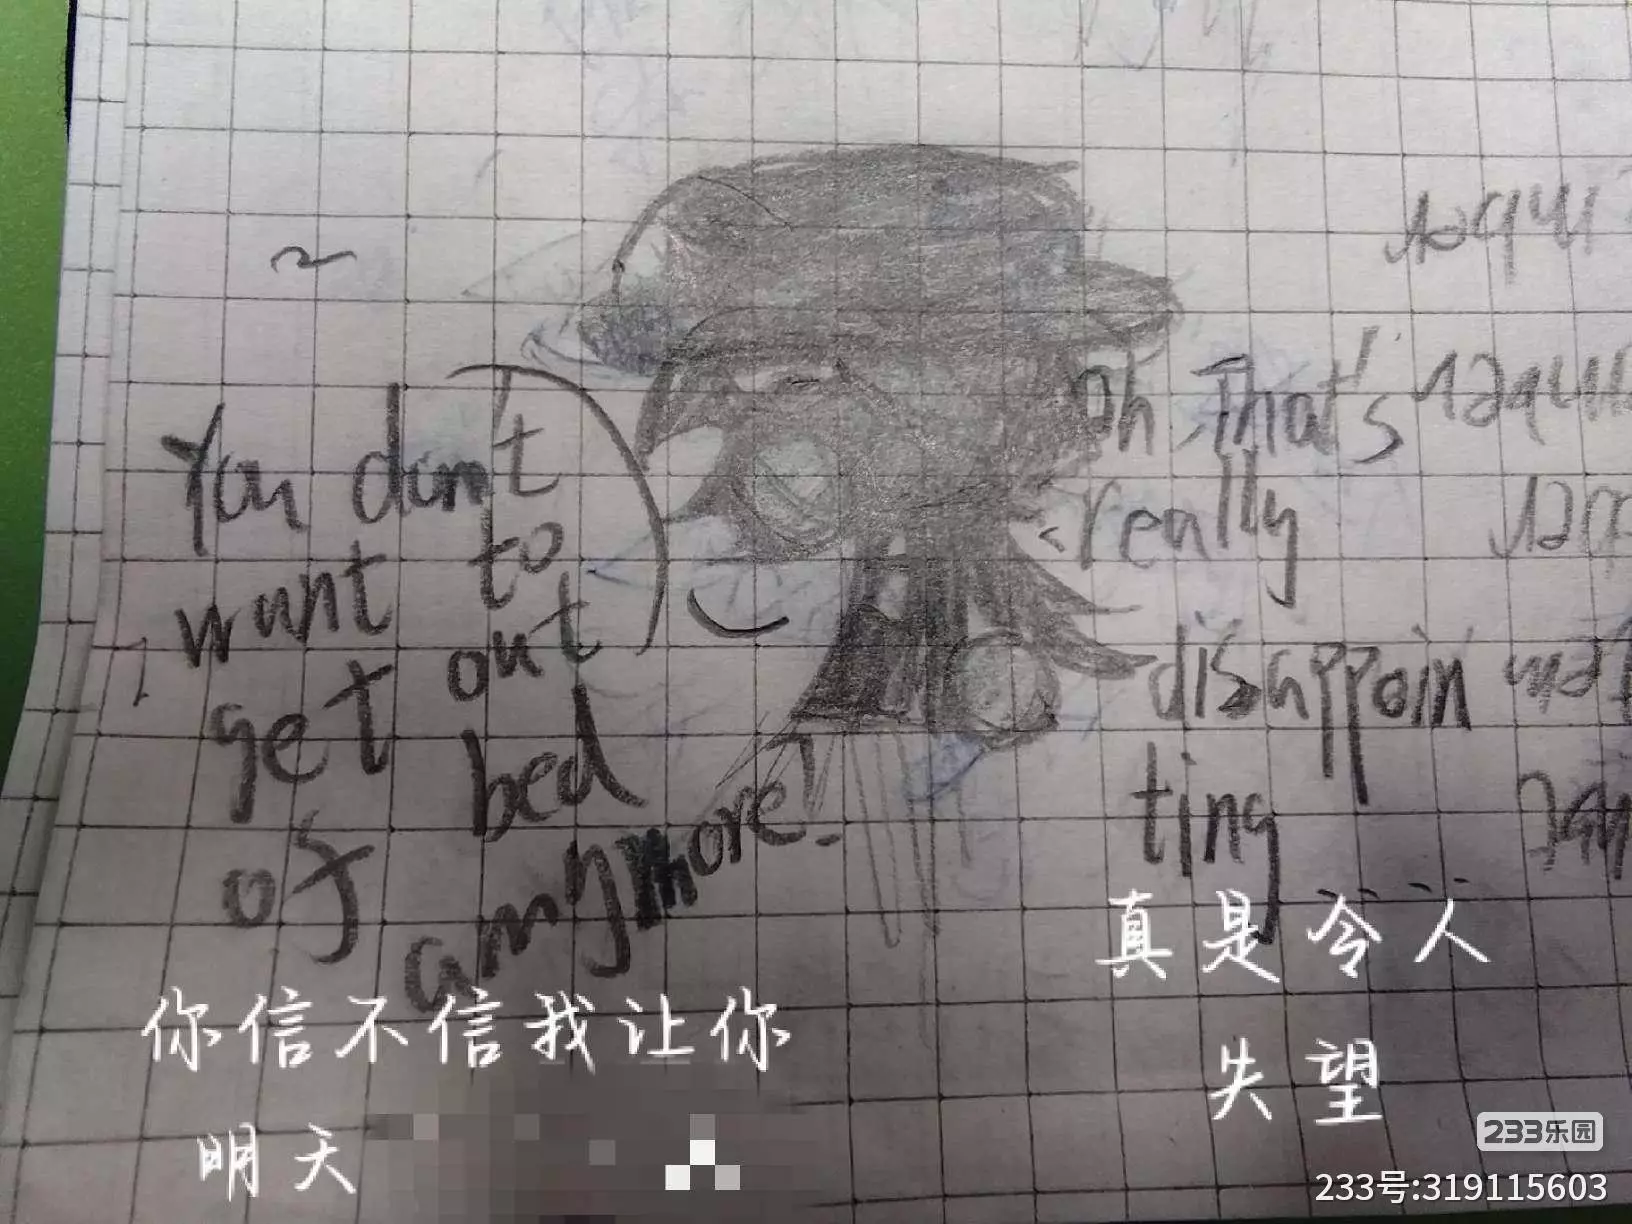 You don't
want to
get out
of bed
anymore!
oh That's
really
disappoin
ting
真是令人
失望
你信不信我让你
明天
233乐园
233号:319115603